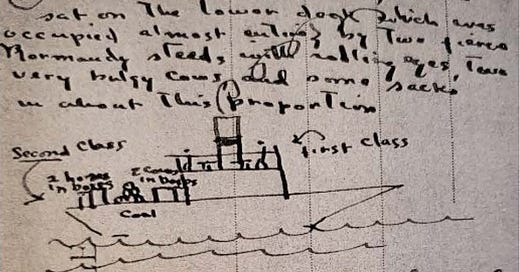 sat on the lower deck which was
occupied almost entirely by two fierce
Normandy steeds with rolling eyes, two
very bulgy cows and some sacks
in about this proportion
Second class
first class
2 horses
in boxes
2 cows
in boxes
Coal